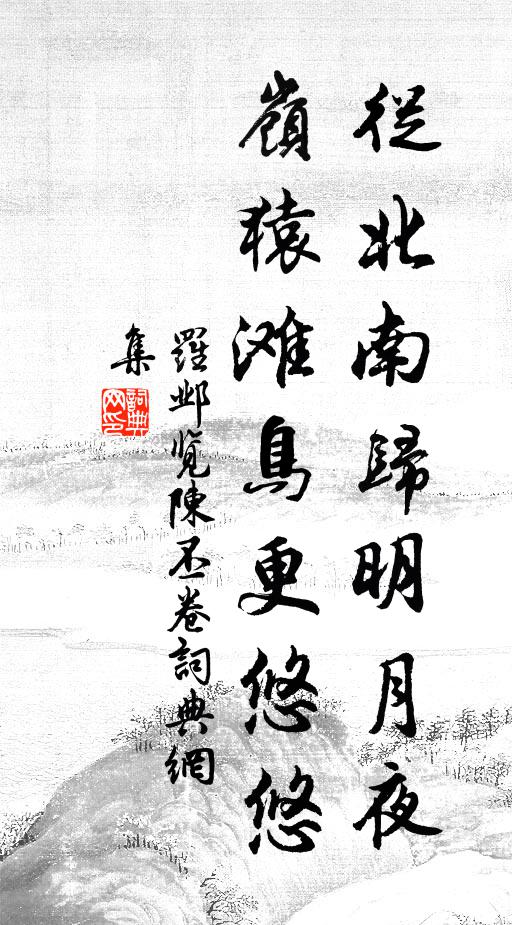 從北南歸明月夜
嶺猿滩鳥更悠悠
羅邺览陳丕卷詞典網
集
詞典網印